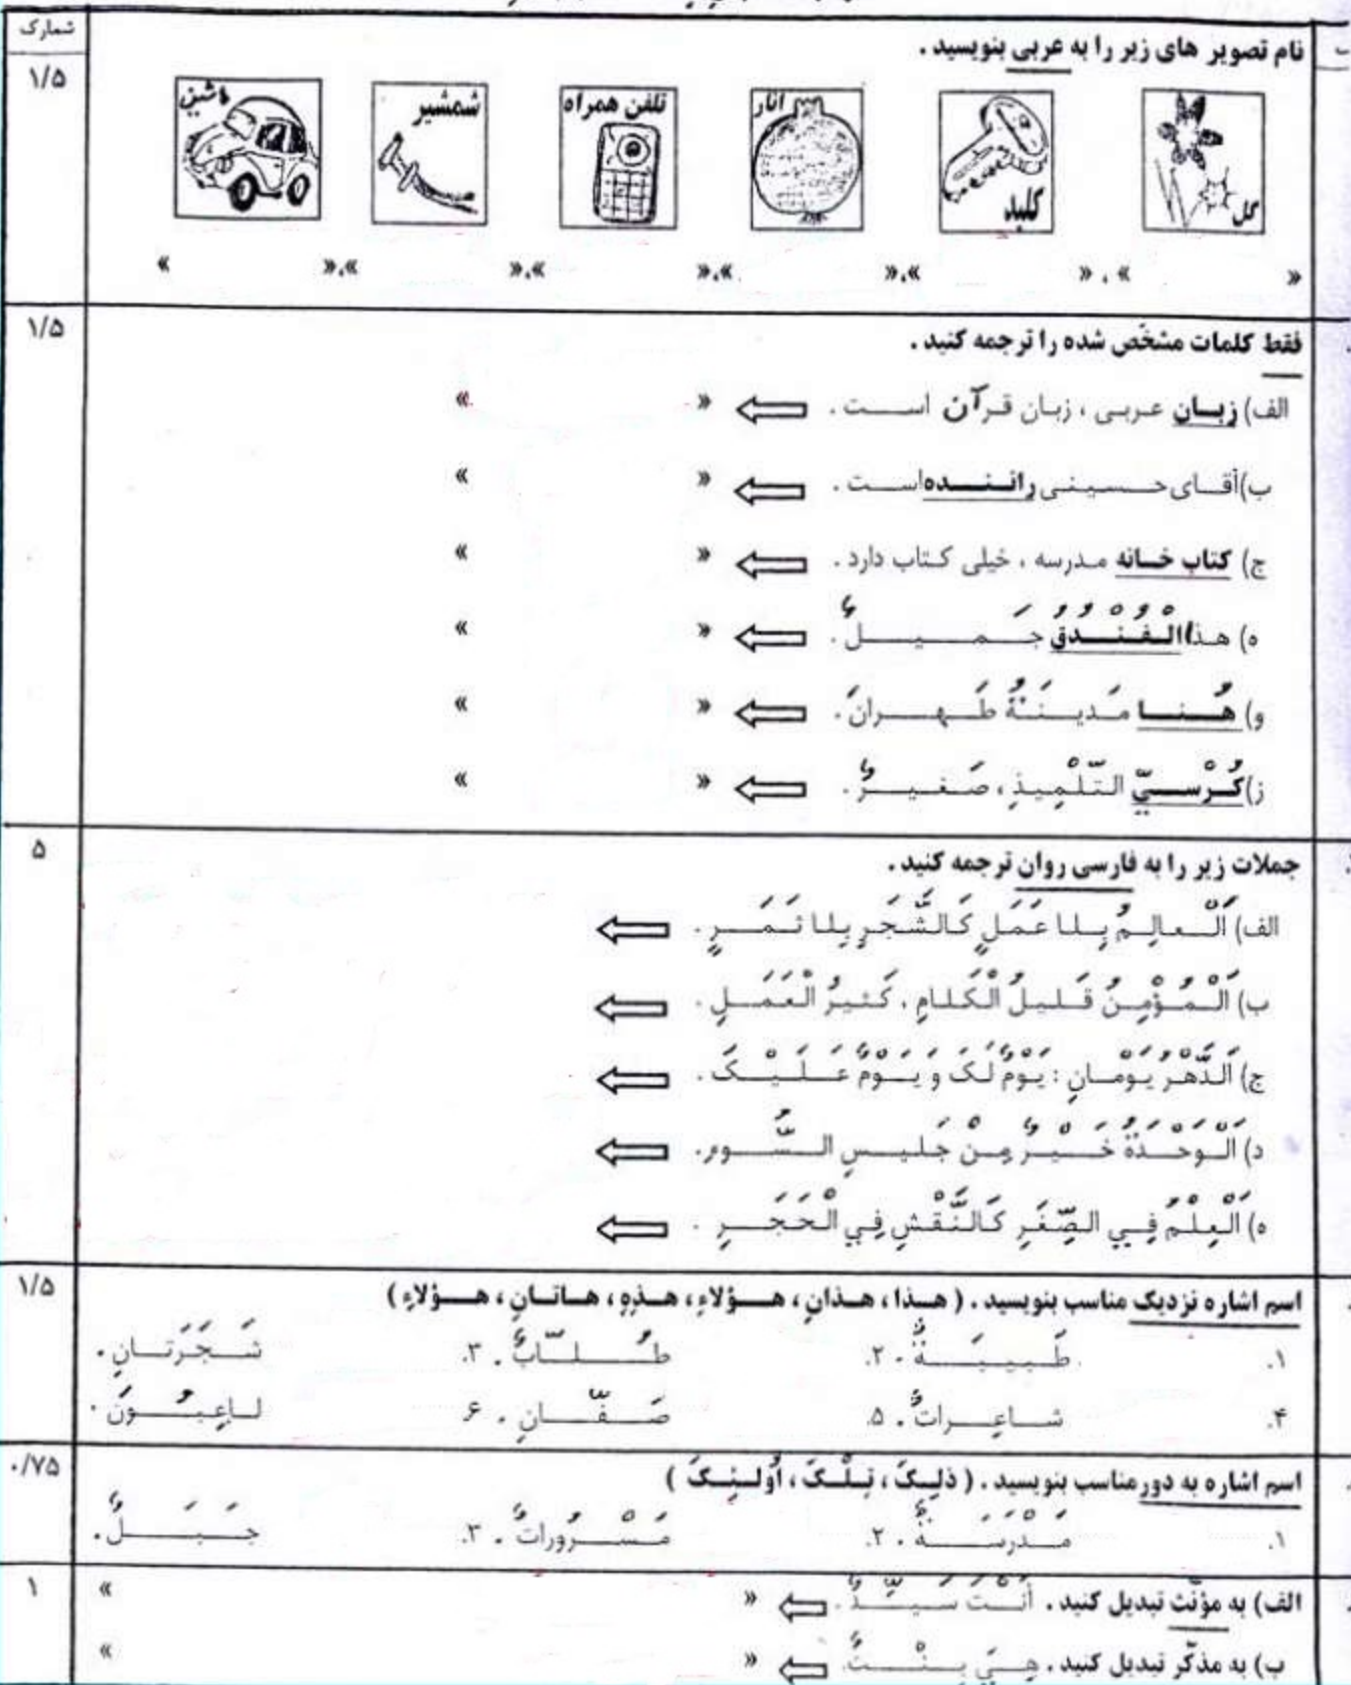 شمارک
نام تصویر های زیر را به عربی بنویسید .
۱/۵
گل
کلید
انار
تلفن همراه
شمشیر
ماشین
« » ، « »،« »،« »،« »،« »
فقط کلمات مشخّص شده را ترجمه کنید .
۱/۵
الف) زبان عربی ، زبان قرآن است . « »
ب)آقای حسینی راننده است . « »
ج) کتاب خانه مدرسه ، خیلی کتاب دارد . « »
ه) هذا الْفُنْدُقُ جَمیلٌ . « »
و) هُنا مَدینَةُ طَهرانَ . « »
ز) کُرْسيّ التّلْمِیذِ ، صَغیرٌ . « »
جملات زیر را به فارسی روان ترجمه کنید .
۵
الف) اَلْعالِمُ بِلا عَمَلٍ کَالشَّجَرِ بِلا ثَمَرٍ .
ب) اَلْمُؤْمِنُ قَلیلُ الْکَلامِ ، کَثیرُ الْعَمَلِ .
ج) اَلدَّهْرُ یَوْمانِ : یَوْمٌ لَکَ وَ یَوْمٌ عَلَیْکَ .
د) اَلْوَحْدَةُ خَیْرٌ مِنْ جَلیسِ السُّوءِ.
ه) اَلْعِلْمُ فِي الصِّغَرِ کَالنَّقْشِ فِي الْحَجَرِ .
اسم اشاره نزدیک مناسب بنویسید . ( هذا ، هذانِ ، هؤلاءِ ، هذِهِ ، هاتانِ ، هؤلاءِ )
۱/۵
۱. طَبیبَةٌ . ۲. طُلّابٌ . ۳. شَجَرَتانِ .
۴. شاعِراتٌ . ۵. صَفّانِ . ۶. لاعِبُونَ .
اسم اشاره به دور مناسب بنویسید . ( ذلِکَ ، تِلْکَ ، اُولئِکَ )
۰/۷۵
۱. مَدْرَسَةٌ . ۲. مَسْرُوراتٌ . ۳. جَبَلٌ .
الف) به مؤنّث تبدیل کنید . أنْتَ سَیِّدٌ . « »
۱
ب) به مذکّر تبدیل کنید . هِيَ بِنْتٌ . « »